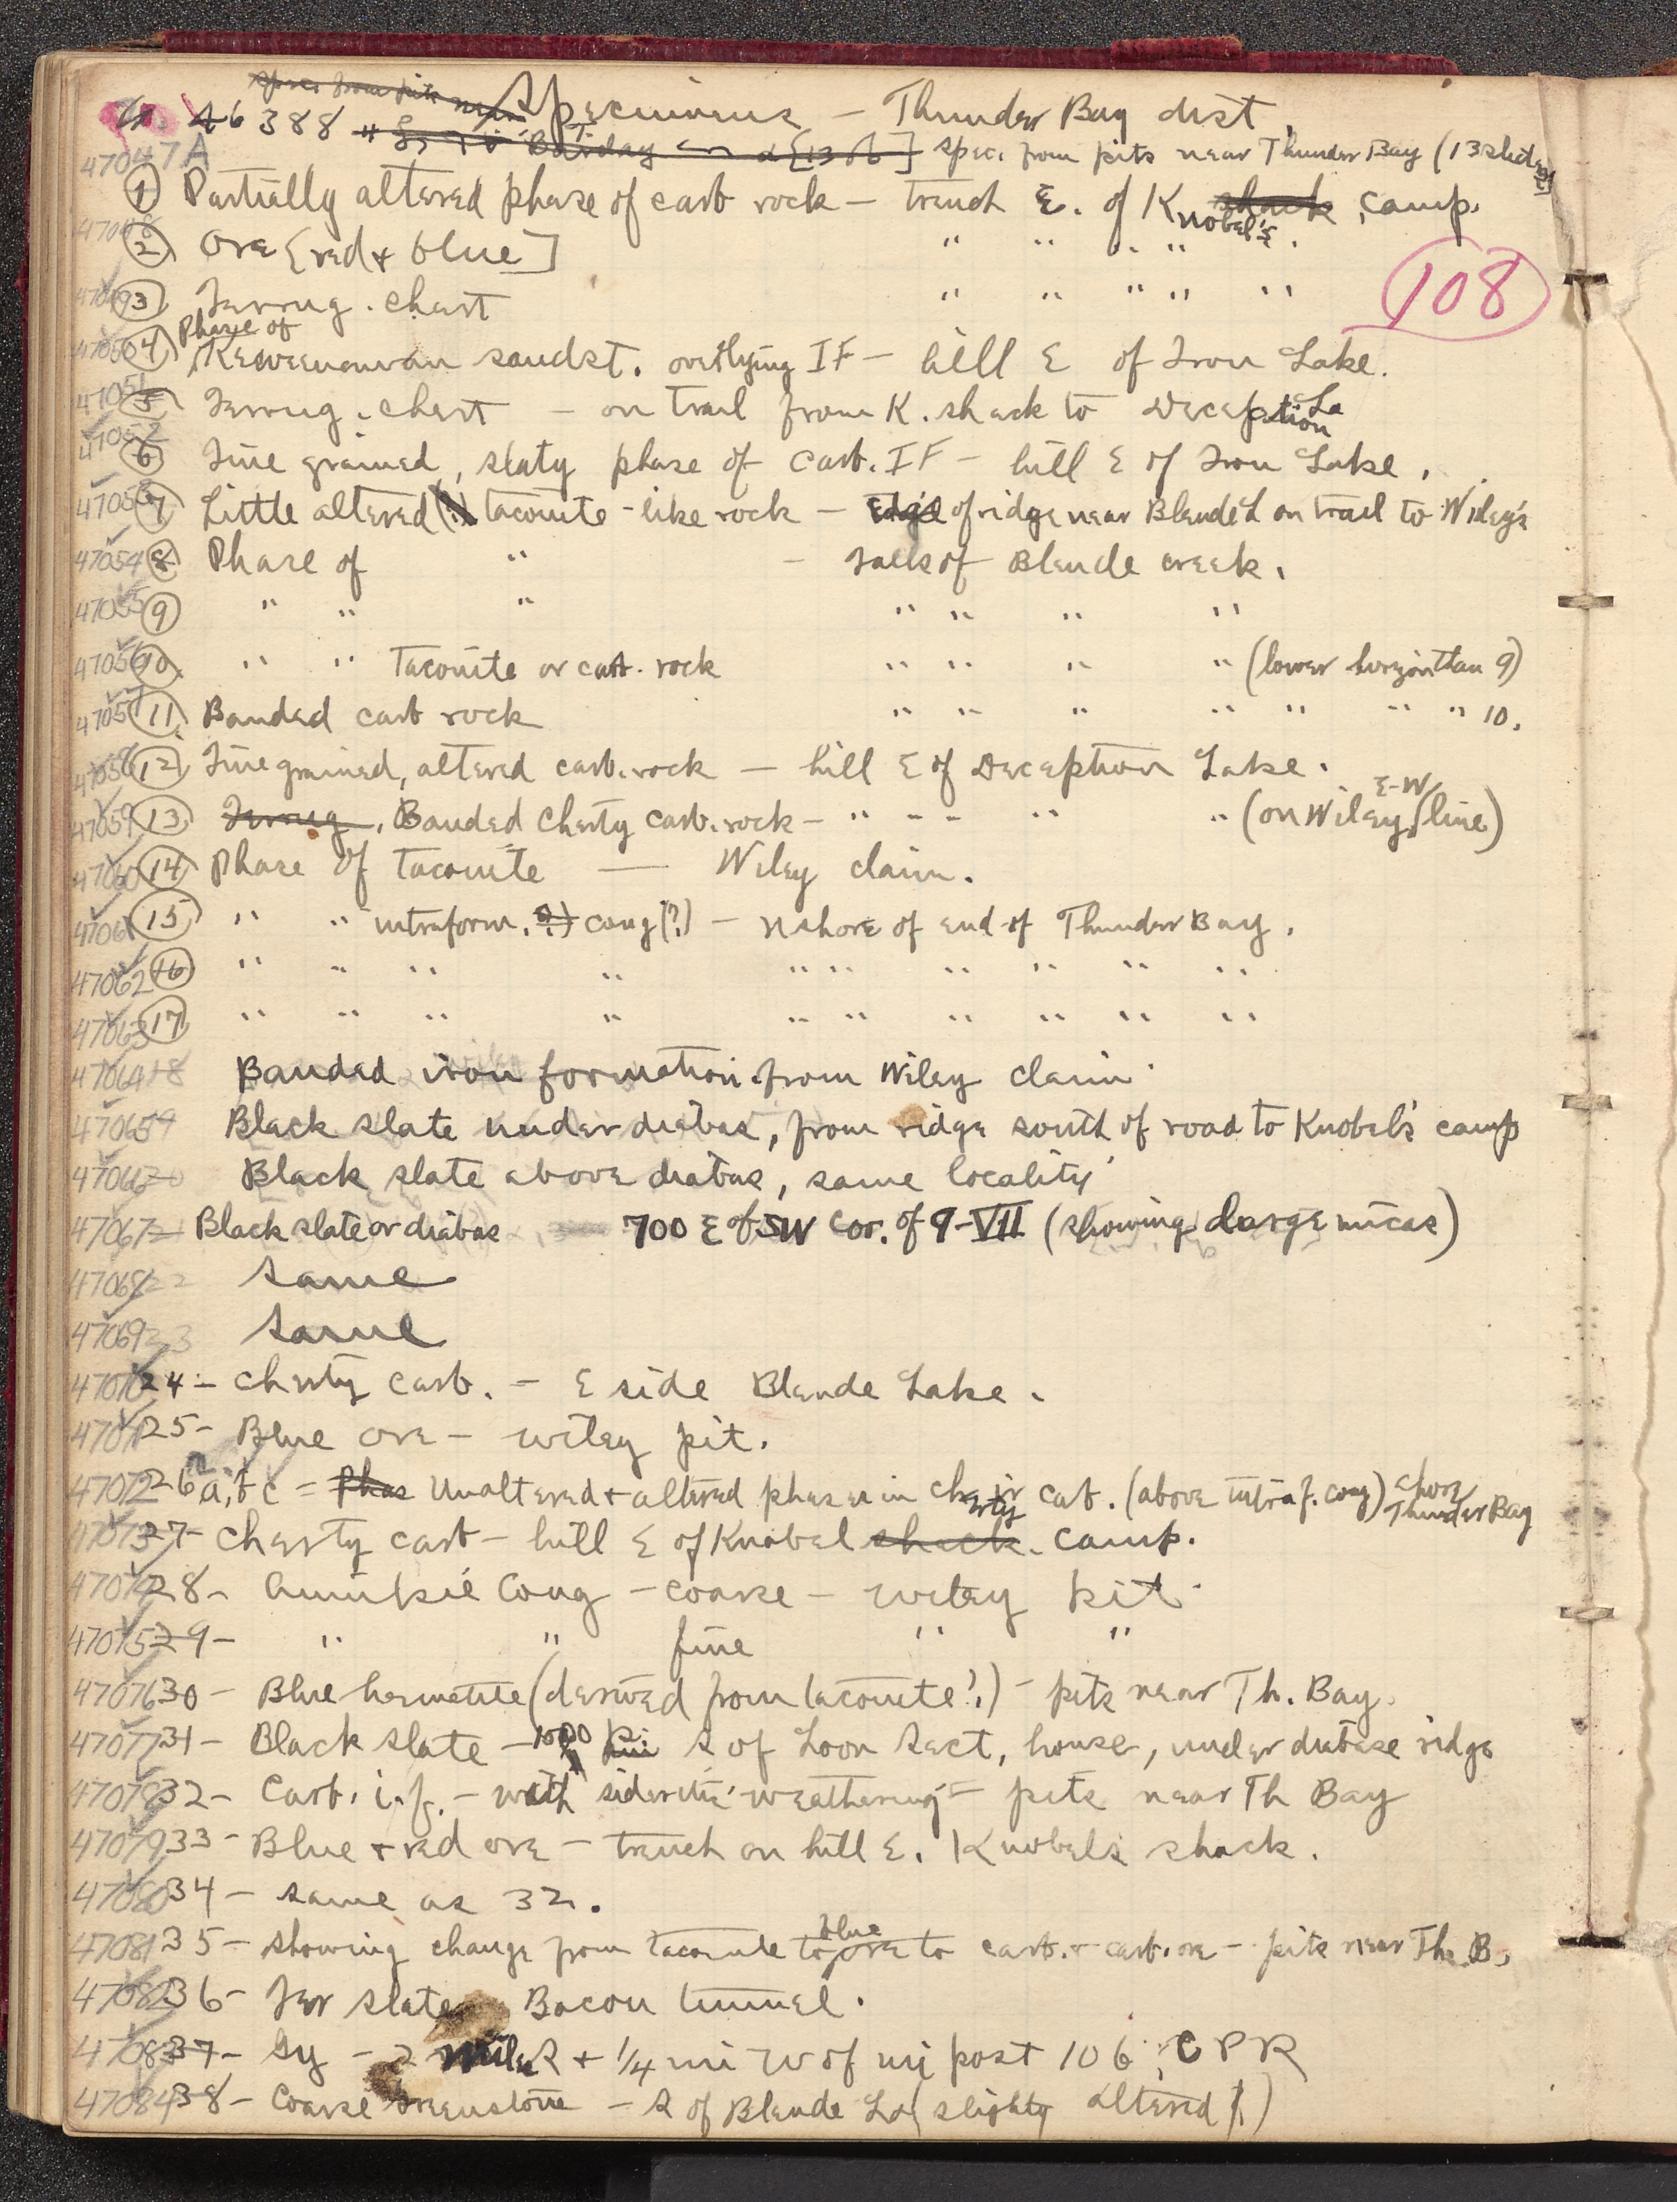 Specimens - Thunder Bay dist.
46388 spec. from pits near Thunder Bay (13 slides)
47047A
1 Partially altered phase of carb rock - trench E. of Knobel's shack camp.
47048 2 Ore [red + blue] " " " " "
47049 3 Ferrug. chert " " " " "
108
47050 4 Phase of Keweenawan sandst. overlying IF - hill E of Iron Lake.
47051 5 Ferrug. chert - on trail from K. shack to Deception La
47052 6 Fine grained, slaty phase of carb. IF - hill E of Iron Lake.
47053 7 Little altered (?) taconite-like rock - edge of ridge near Blende L on trail to Wiley's
47054 8 Phase of " - falls of Blende creek.
47055 9 " " " " " " "
47056 10 " " Taconite or carb. rock " " " " (lower horizon than 9)
47057 11 Banded carb rock " " " " " " " 10.
47058 12 Fine grained, altered carb. rock - hill E of Deception Lake.
47059 13 Ferrug. Banded Cherty carb. rock - " " " " " (on Wiley E-W line)
47060 14 Phase of taconite - Wiley claim.
47061 15 " " intraform. (?) cong (?) - N shore of end of Thunder Bay.
47062 16 " " " " " " " " " "
47063 17 " " " " " " " " " "
47064 18 Banded iron formation from Wiley claim
47065 19 Black slate under diabas, from ridge south of road to Knobel's camp
47066 20 Black slate above diabas, same locality
47067 21 Black slate or diabas 700 E of SW cor. of 9-VII (showing large micas)
47068 22 Same
47069 23 Same
47070 24 - Cherty carb. - E side Blende Lake.
47071 25 - Blue ore - Wiley pit.
47072 26 a, b c = Phas Unaltered + altered phases in cherty carb. (above intraf. cong) shore Thunder Bay
47073 27 - Cherty carb - hill E of Knobel shack camp.
47074 28 - Animkie Cong - coarse - Wiley pit
47075 29 - " " fine " "
47076 30 - Blue hematite (derived from taconite?) - pits near Th. Bay.
47077 31 - Black slate - 1500 S of Loon Sect. house, under diabase ridge
47078 32 - Carb. i.f. - with siderite weathering = pits near Th Bay
47079 33 - Blue + red ore - trench on hill E. Knobels shack.
47080 34 - same as 32.
47081 35 - showing change from taconite to blue ore to carb. + carb. ore - pits near Th. B.
47082 36 - Fer slate Bacon tunnel.
47083 37 - Gy - 2 miles S + 1/4 mi W of mi post 106 CPR
47084 38 - Coarse Greenstone - S of Blende La (slighty altered)